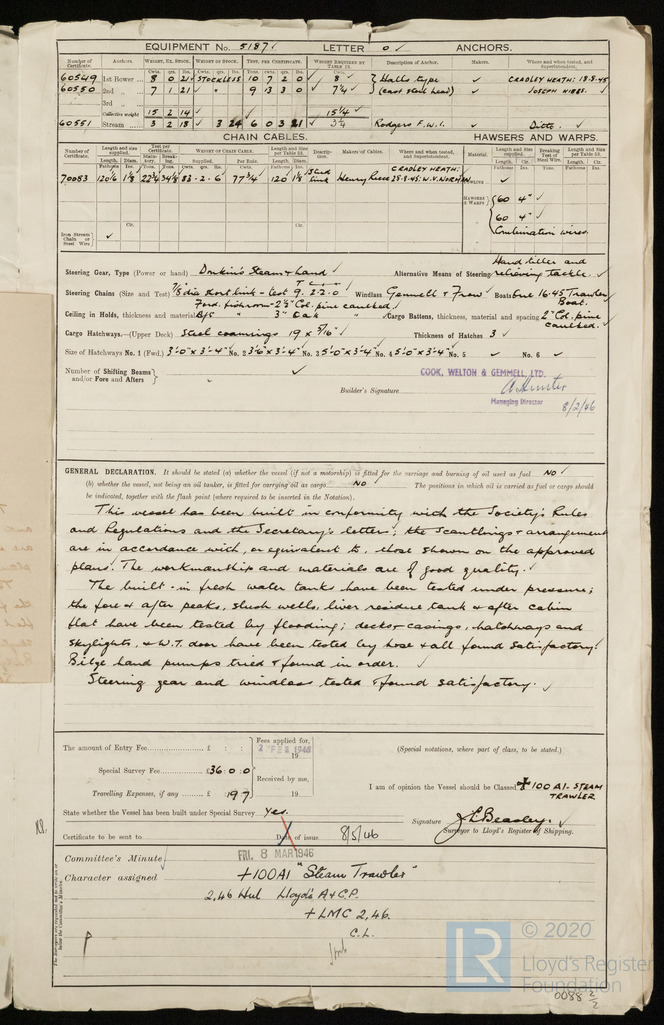 EQUIPMENT No. 5187 LETTER O ANCHORS.
Number of Certificate. Anchors. WEIGHT, EX. STOCK. WEIGHT OF STOCK. TEST, PER CERTIFICATE. WEIGHT REQUIRED BY TABLE 53. Description of Anchor. Makers. Where and when tested, and Superintendent.
60549 1st Bower 8 0 21 STOCKLESS 10 7 2 0 8 Halls type CRADLEY HEATH: 18.8.45
60550 2nd " 7 1 21 " 9 13 3 0 7¼ (cast steel head) JOSEPH HIBBS.
3rd "
Collective weight 15 2 14 15¼
60551 Stream 3 2 18 3 24 6 0 3 21 3¾ Rodgers F.W.I. Ditto.
CHAIN CABLES. HAWSERS AND WARPS.
Number of Certificate. Length and size supplied. Test per Certificate. WEIGHT OF CHAIN CABLE. Length and size per Table 53. Description. Makers of Cables. Where and when tested, and Superintendent. Material. Length and size supplied. Breaking Test of Steel Wire. Length and size per Table 53.
70083 120⅙ 1⅛ 22¾ 34⅛ 83-2-6 77¾ 120 1⅛ Stud link Henry Reece CRADLEY HEATH: 28-8-45: W.V. NORMAN
HAWSERS & WARPS 60 4"
60 4"
Combination wires.
Iron Stream Chain or Steel Wire
Hand tiller and
Steering Gear, Type (Power or hand) Donkin's Steam & hand Alternative Means of Steering relieving tackle.
Steering Chains (Size and Test) ⅞ dia short link - test 9. 2. 2. 0 Windlass Gemmell & Frow Boats One 16.45 Trawler Boat.
Ford. fishroom - 2½" Col. pine caulked
Ceiling in Holds, thickness and material B/S " 3" Oak " Cargo Battens, thickness, material and spacing 2" Col. pine caulked.
Cargo Hatchways.—(Upper Deck) Steel coamings 19 x 5/16" Thickness of Hatches 3
Size of Hatchways No. 1 (Fwd.) 3'-0" x 3'-4" No. 2 3'6" x 3'-4" No. 3 5'0" x 3'-4" No. 4 5'-0" x 3'-4" No. 5 No. 6
Number of Shifting Beams and/or Fore and Afters
COOK, WELTON & GEMMELL, LTD.
Builder's Signature
Managing Director 8/2/46
GENERAL DECLARATION. It should be stated (a) whether the vessel (if not a motorship) is fitted for the carriage and burning of oil used as fuel NO
(b) whether the vessel, not being an oil tanker, is fitted for carrying oil as cargo NO The positions in which oil is carried as fuel or cargo should
be indicated, together with the flash point (where required to be inserted in the Notation).
This vessel has been built in conformity with the Society's Rules
and Regulations and the Secretary's letters; the scantlings & arrangement
are in accordance with, or equivalent to, those shown on the approved
plans. The workmanship and materials are of good quality.
The built-in fresh water tanks have been tested under pressure;
the fore & after peaks, slush wells, liver residue tank & after cabin
flat have been tested by flooding; decks & casings, hatchways and
skylights, & W.T. door have been tested by hose & all found satisfactory.
Bilge hand pumps tried & found in order.
Steering gear and windlass tested & found satisfactory.
The amount of Entry Fee £ : : Fees applied for, 2 FEB 1946 19 (Special notations, where part of class, to be stated.)
Special Survey Fee £36:0:0 Received by me,
Travelling Expenses, if any £ 19.7. 19 I am of opinion the Vessel should be Classed ✠100 A1. STEAM TRAWLER
State whether the Vessel has been built under Special Survey Yes.
Signature J.L. Beasley.
Surveyor to Lloyd's Register of Shipping.
Certificate to be sent to Date of issue 8/5/46
Committee's Minute FRI. 8 MAR 1946
Character assigned +100A1 "Steam Trawler"
2,46 Hul Lloyd's A & C.P.
+ LMC 2,46.
C.L.
LR © 2020
Lloyd's Register
Foundation
0088 2/2